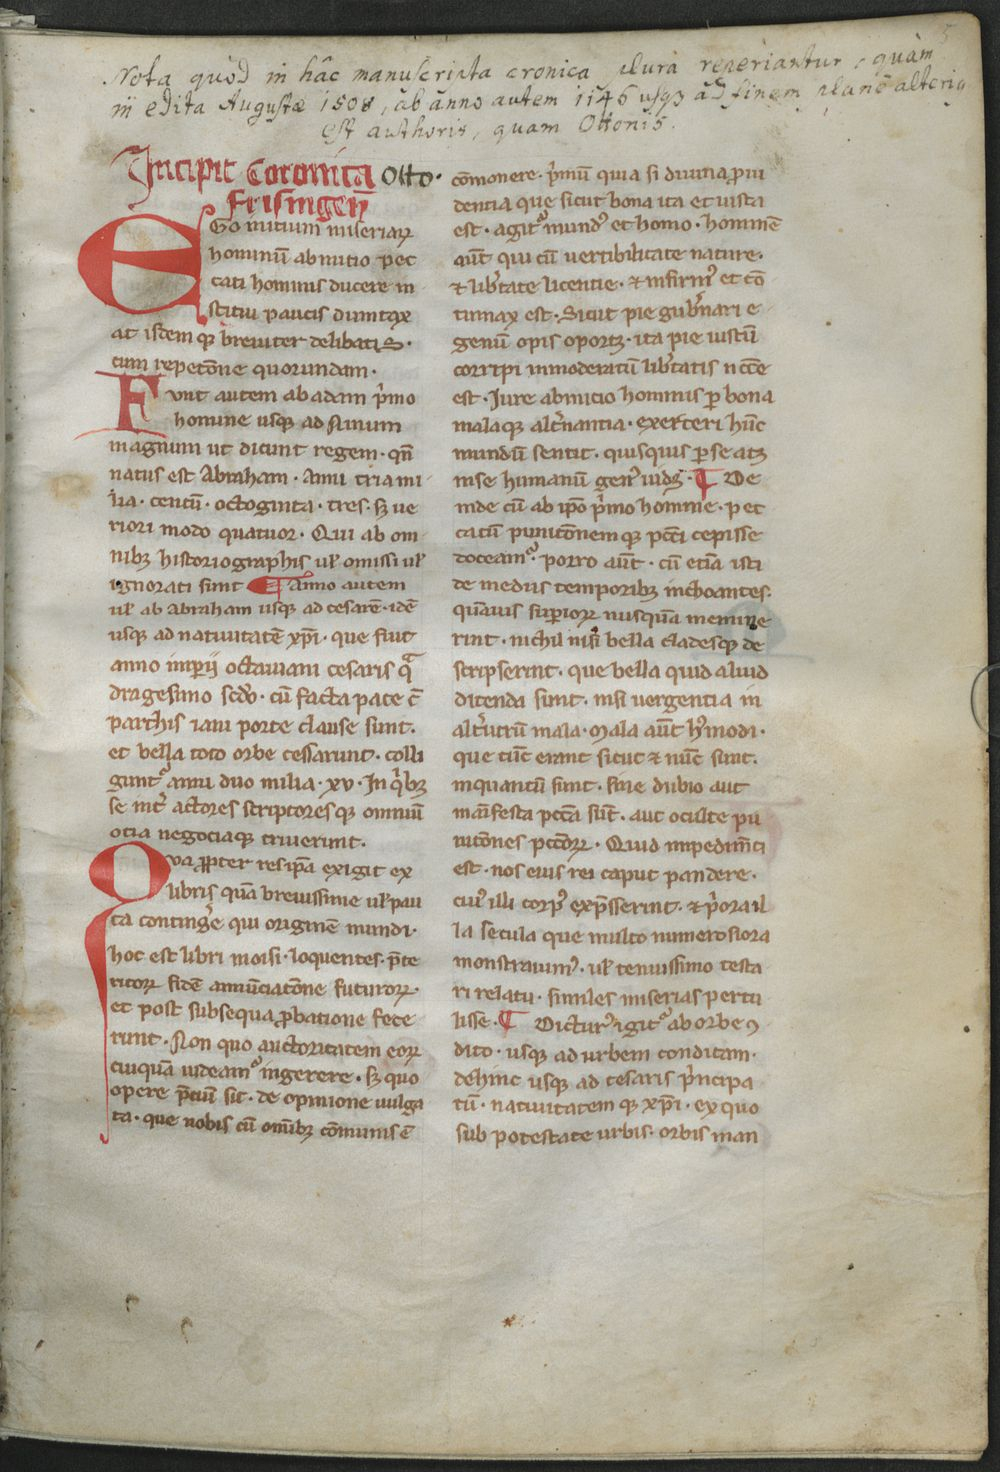 5
Nota quod in hâc manuscripta cronica plura reperiantur, quàm
in edita Augustæ 1508, ab anno autem 1146 usq3 ad finem planè alterius
est authoris, quam Ottonis.
Incipit Coronica Otto·
Frisingen̄
EGo initium miseriaꝝ
hominū ab initio pec
cati hominis ducere in
stitui paucis dumtaxat
at isdem qꝫ breuiter delibatis·
cum repetit̄one quorundam·
Fvnt autem ab adam p̄mo
homine usqꝫ ad Ninum
magnum ut dicunt regem· qn̄
natus est Abraham· Anni tria mi
lia· centū· octoginta· tres· sꝫ ue
riori modo quatuor· Qui ab om
nibꝫ historiographis ul̄ omissi ul̄
ignorati sunt ¶ Anno autem
ul̄ ab Abraham usqꝫ ad cesarē· idē
usqꝫ ad natiuitatē xp̄i· que fuit
anno imperij octauiani cesaris qͣ
dragesimo scd̄o· cū facta pace cū
parthis iani porte clause sunt·
et bella toto orbe cessarunt· colli
guntᷣ anni duo milia· xv· In qͥbꝫ
se int̄ actores scriptoresqꝫ omniū
ocia negociaqꝫ triuerunt·
Qva ꝓpter res ip̄a exigit ex
libris quā breuissime ul̄ pau
ca continḡe qui originē mundi·
hoc est libri moisi· loquentes· p̄te
ritoꝝ fidē annūciatōne futuroꝝ·
et post subsequa ꝓbatione fece
runt· Non quo auctoritatem eoꝝ
cuiquā uideamᷣ ingerere· sꝫ quo
opere p̄ciū sit· de opinione uulga
ta· que nobis cū om̄ibꝫ cōmunis ē
cōmonere· p̄mū quia si diuina ꝓui
dentia que sicut bona ita et iusta
est· agitᷣ mundꝰ et homo· hominē
aūt qui cū uertibilitate nature·
& lib̄tate licentie· & infirmꝰ et cō
tumax est· Sicut pie gub̄nari e
genū opis oportꝫ· ita pie iustū
corripi inmoderatū lib̄tatis ncc̄e
est· Jure ab initio hominis ꝑ bona
malaqꝫ alt̄nantia· exerceri hūc
mundū sentit· quisquis ꝑ se atqꝫ
in se humanū genꝰ uidꝫ· ¶ De
inde cū ab ip̄o p̄mo homine· pec
catū punitōnemqꝫ pcc̄i cepisse
doceamᷣ· porro aūt· cū etiā isti
de medijs temporibꝫ inchoantes·
quāuis superioꝝ nusquā memine
rint· nichil nisi bella cladesqꝫ de
scripserint· que bella quid aliud
dicenda sunt· nisi uergentia in
alt̄utrū mala· Mala aūt hꝰmodi·
que tūc erant sicut & nūc sunt·
inquantū sunt· sine dubio aut
manīfesta pcc̄a sūt· aut oculte pu
nitōnes pcc̄oꝝ· Quid impedim̄ti
est· nos eius rei caput pandere·
cuiꝰ illi corpꝰ exp̄sserint· & p̄ora il
la secula que multo numerosiora
monstrauimꝰ· ul̄ tenuissimo testa
ri relatu· similes miserias pertu
lisse· ¶ Dicturꝰ igitᷣ ab orbe ꝯ
dito· usqꝫ ad urbem conditam·
dehinc usqꝫ ad cesaris p̄ncipa
tū· natiuitatemqꝫ xp̄i· ex quo
sub potestate urbis· orbis man